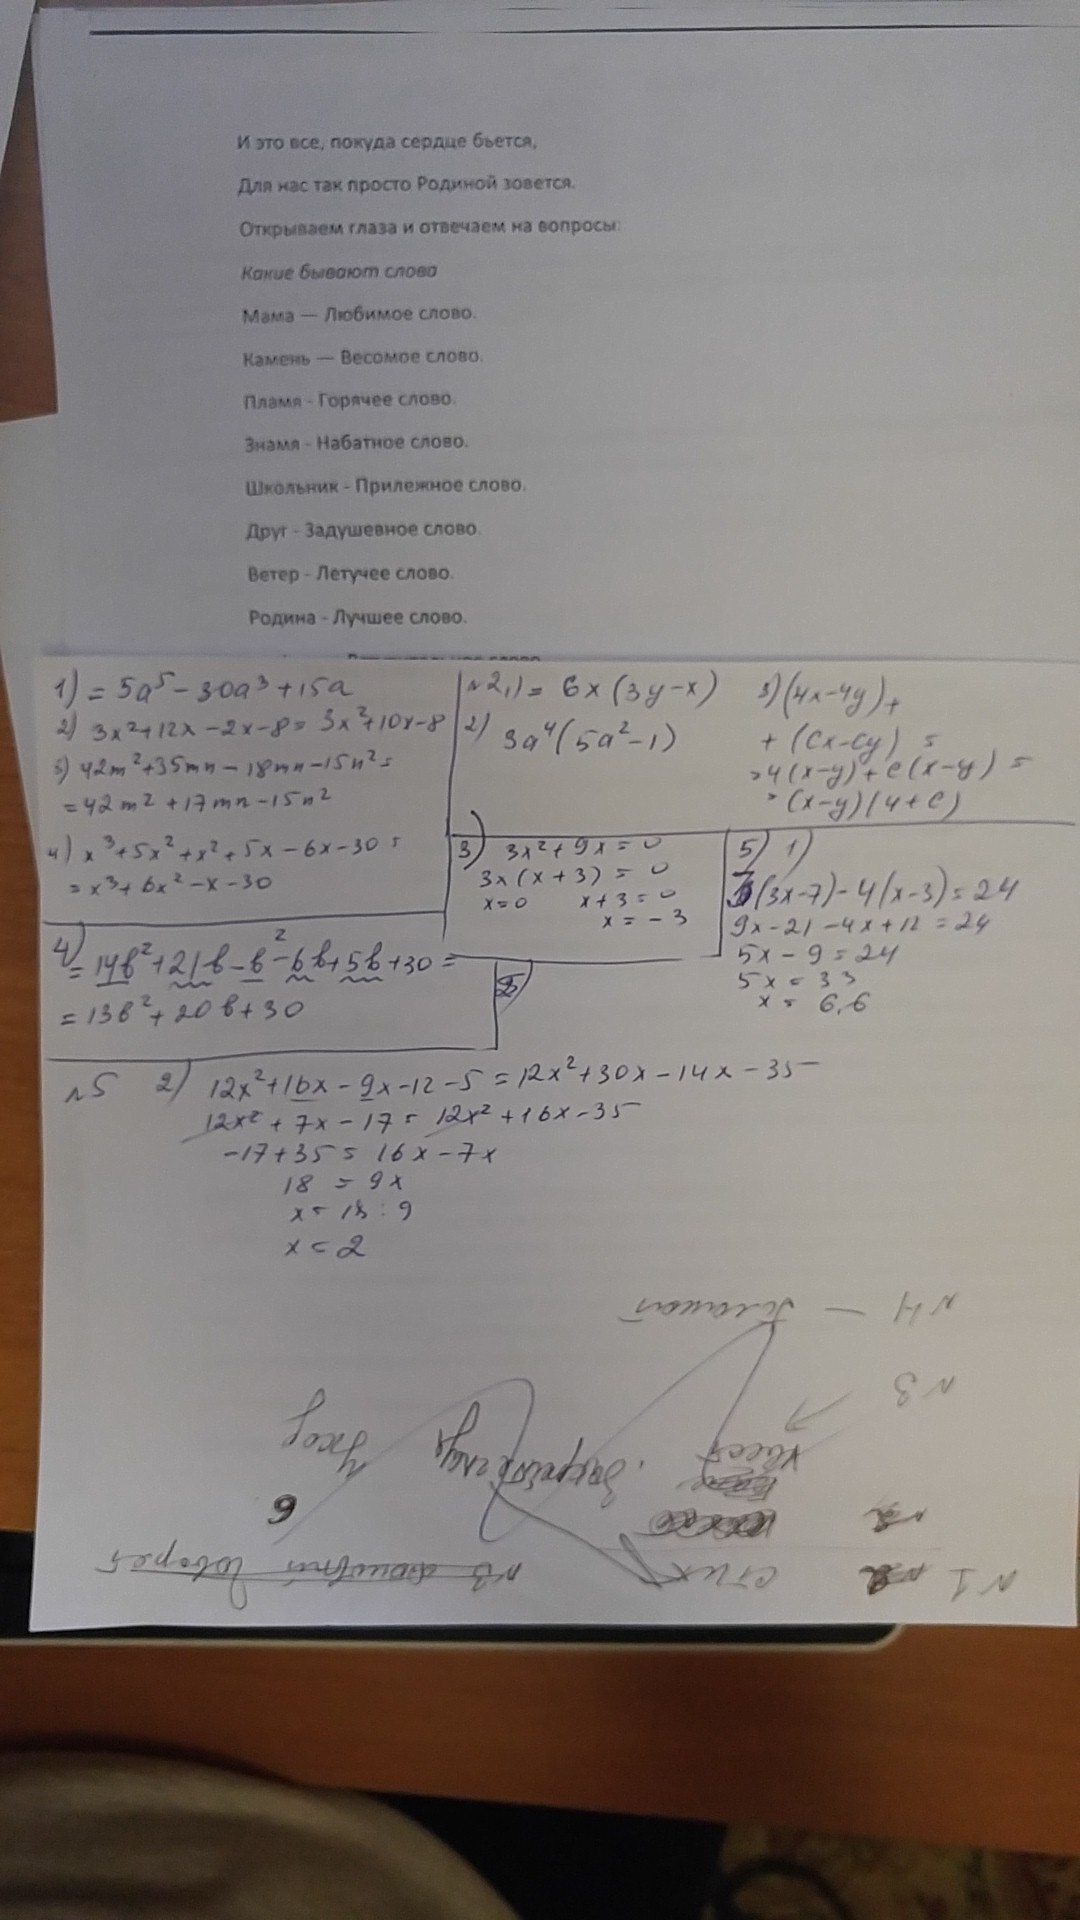 И это все, покуда сердце бьется,
Для нас так просто Родиной зовется.
Открываем глаза и отвечаем на вопросы:
Какие бывают слова
Мама — Любимое слово.
Камень — Весомое слово.
Пламя - Горячее слово.
Знамя - Набатное слово.
Школьник - Прилежное слово.
Друг - Задушевное слово.
Ветер - Летучее слово.
Родина - Лучшее слово.
1) = 5a⁵ - 30a³ + 15a
2) 3x² + 12x - 2x - 8 = 3x² + 10x - 8
3) 42m² + 35mn - 18mn - 15n² =
= 42m² + 17mn - 15n²
4) x³ + 5x² + x² + 5x - 6x - 30 =
= x³ + 6x² - x - 30
№2, 1) = 6x (3y - x)
2) 3a⁴ (5a² - 1)
3) (4x - 4y) +
+ (cx - cy) =
= 4(x - y) + c(x - y) =
= (x - y)(4 + c)
3) 3x² + 9x = 0
3x (x + 3) = 0
x = 0 x + 3 = 0
x = - 3
5) 1)
3(3x - 7) - 4(x - 3) = 24
9x - 21 - 4x + 12 = 24
5x - 9 = 24
5x = 33
x = 6,6
4)
= 14b² + 21b - b² - 6b + 5b + 30 =
= 13b² + 20b + 30
№5 2) 12x² + 16x - 9x - 12 - 5 = 12x² + 30x - 14x - 35
12x² + 7x - 17 = 12x² + 16x - 35
-17 + 35 = 16x - 7x
18 = 9x
x = 18 : 9
x = 2
№1 стих
№3
№4 —